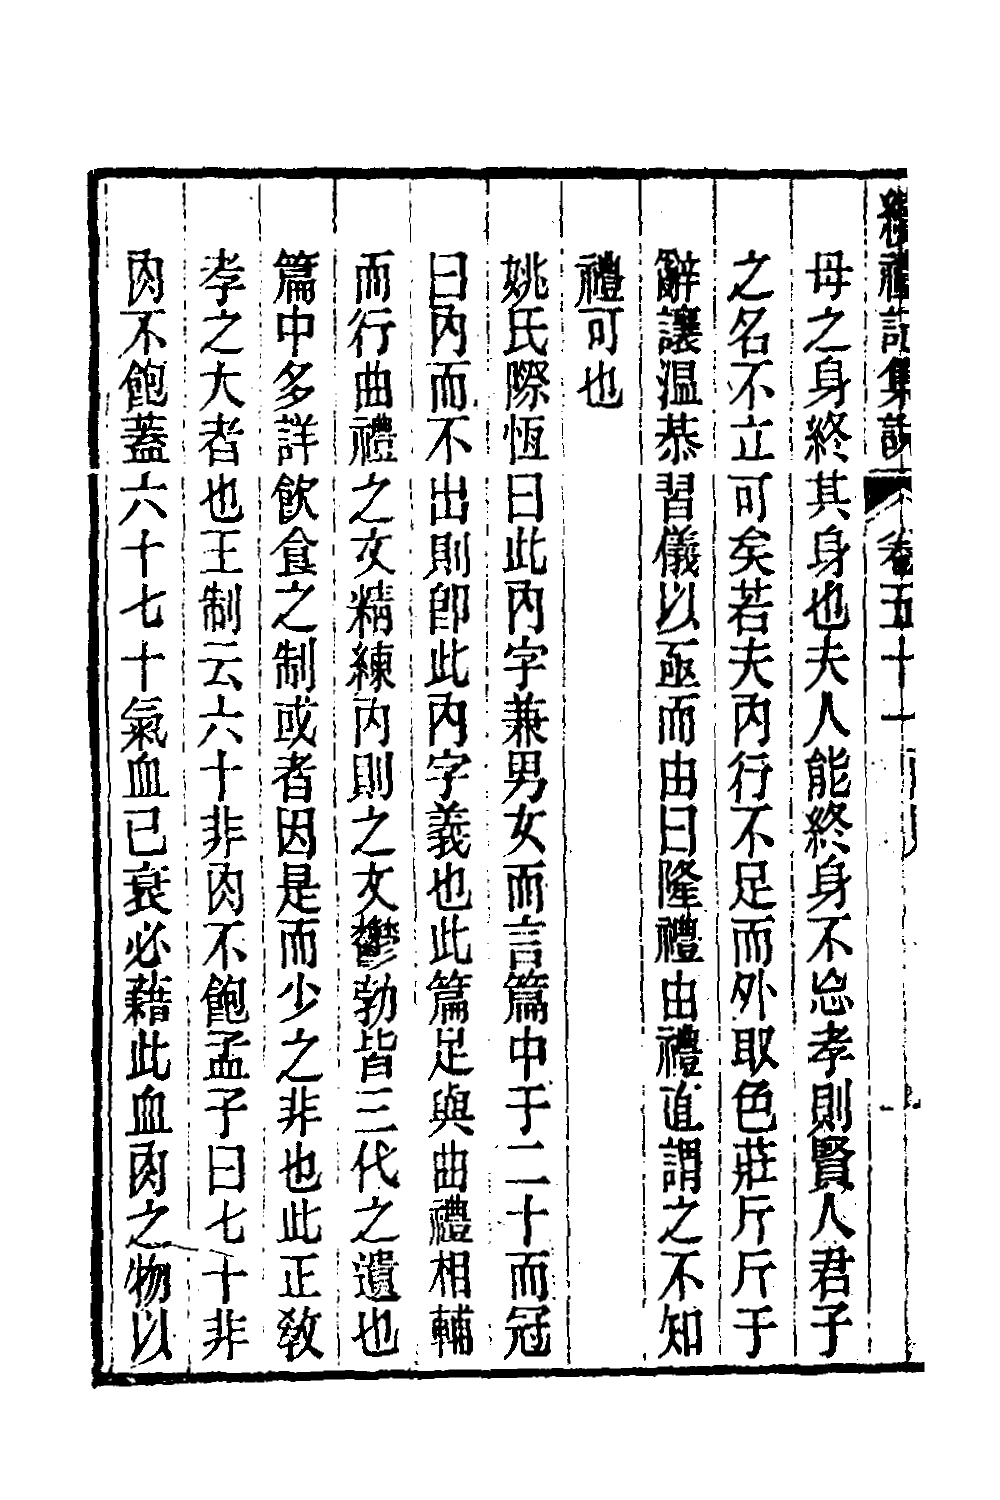 續禮記集說 卷五十一
母之身終其身也夫人能終身不忘孝則賢人君子
之名不立可矣若夫內行不足而外取色莊斤斤于
辭讓溫恭習儀以亟而由曰隆禮由禮直謂之不知
禮可也
姚氏際恆曰此內字兼男女而言篇中于二十而冠
曰內而不出則卽此內字義也此篇足與曲禮相輔
而行曲禮之文精練內則之文鬱勃皆三代之遺也
篇中多詳飮食之制或者因是而少之非也此正敎
孝之大者也王制云六十非肉不飽孟子曰七十非
肉不飽蓋六十七十氣血已衰必藉此血肉之物以